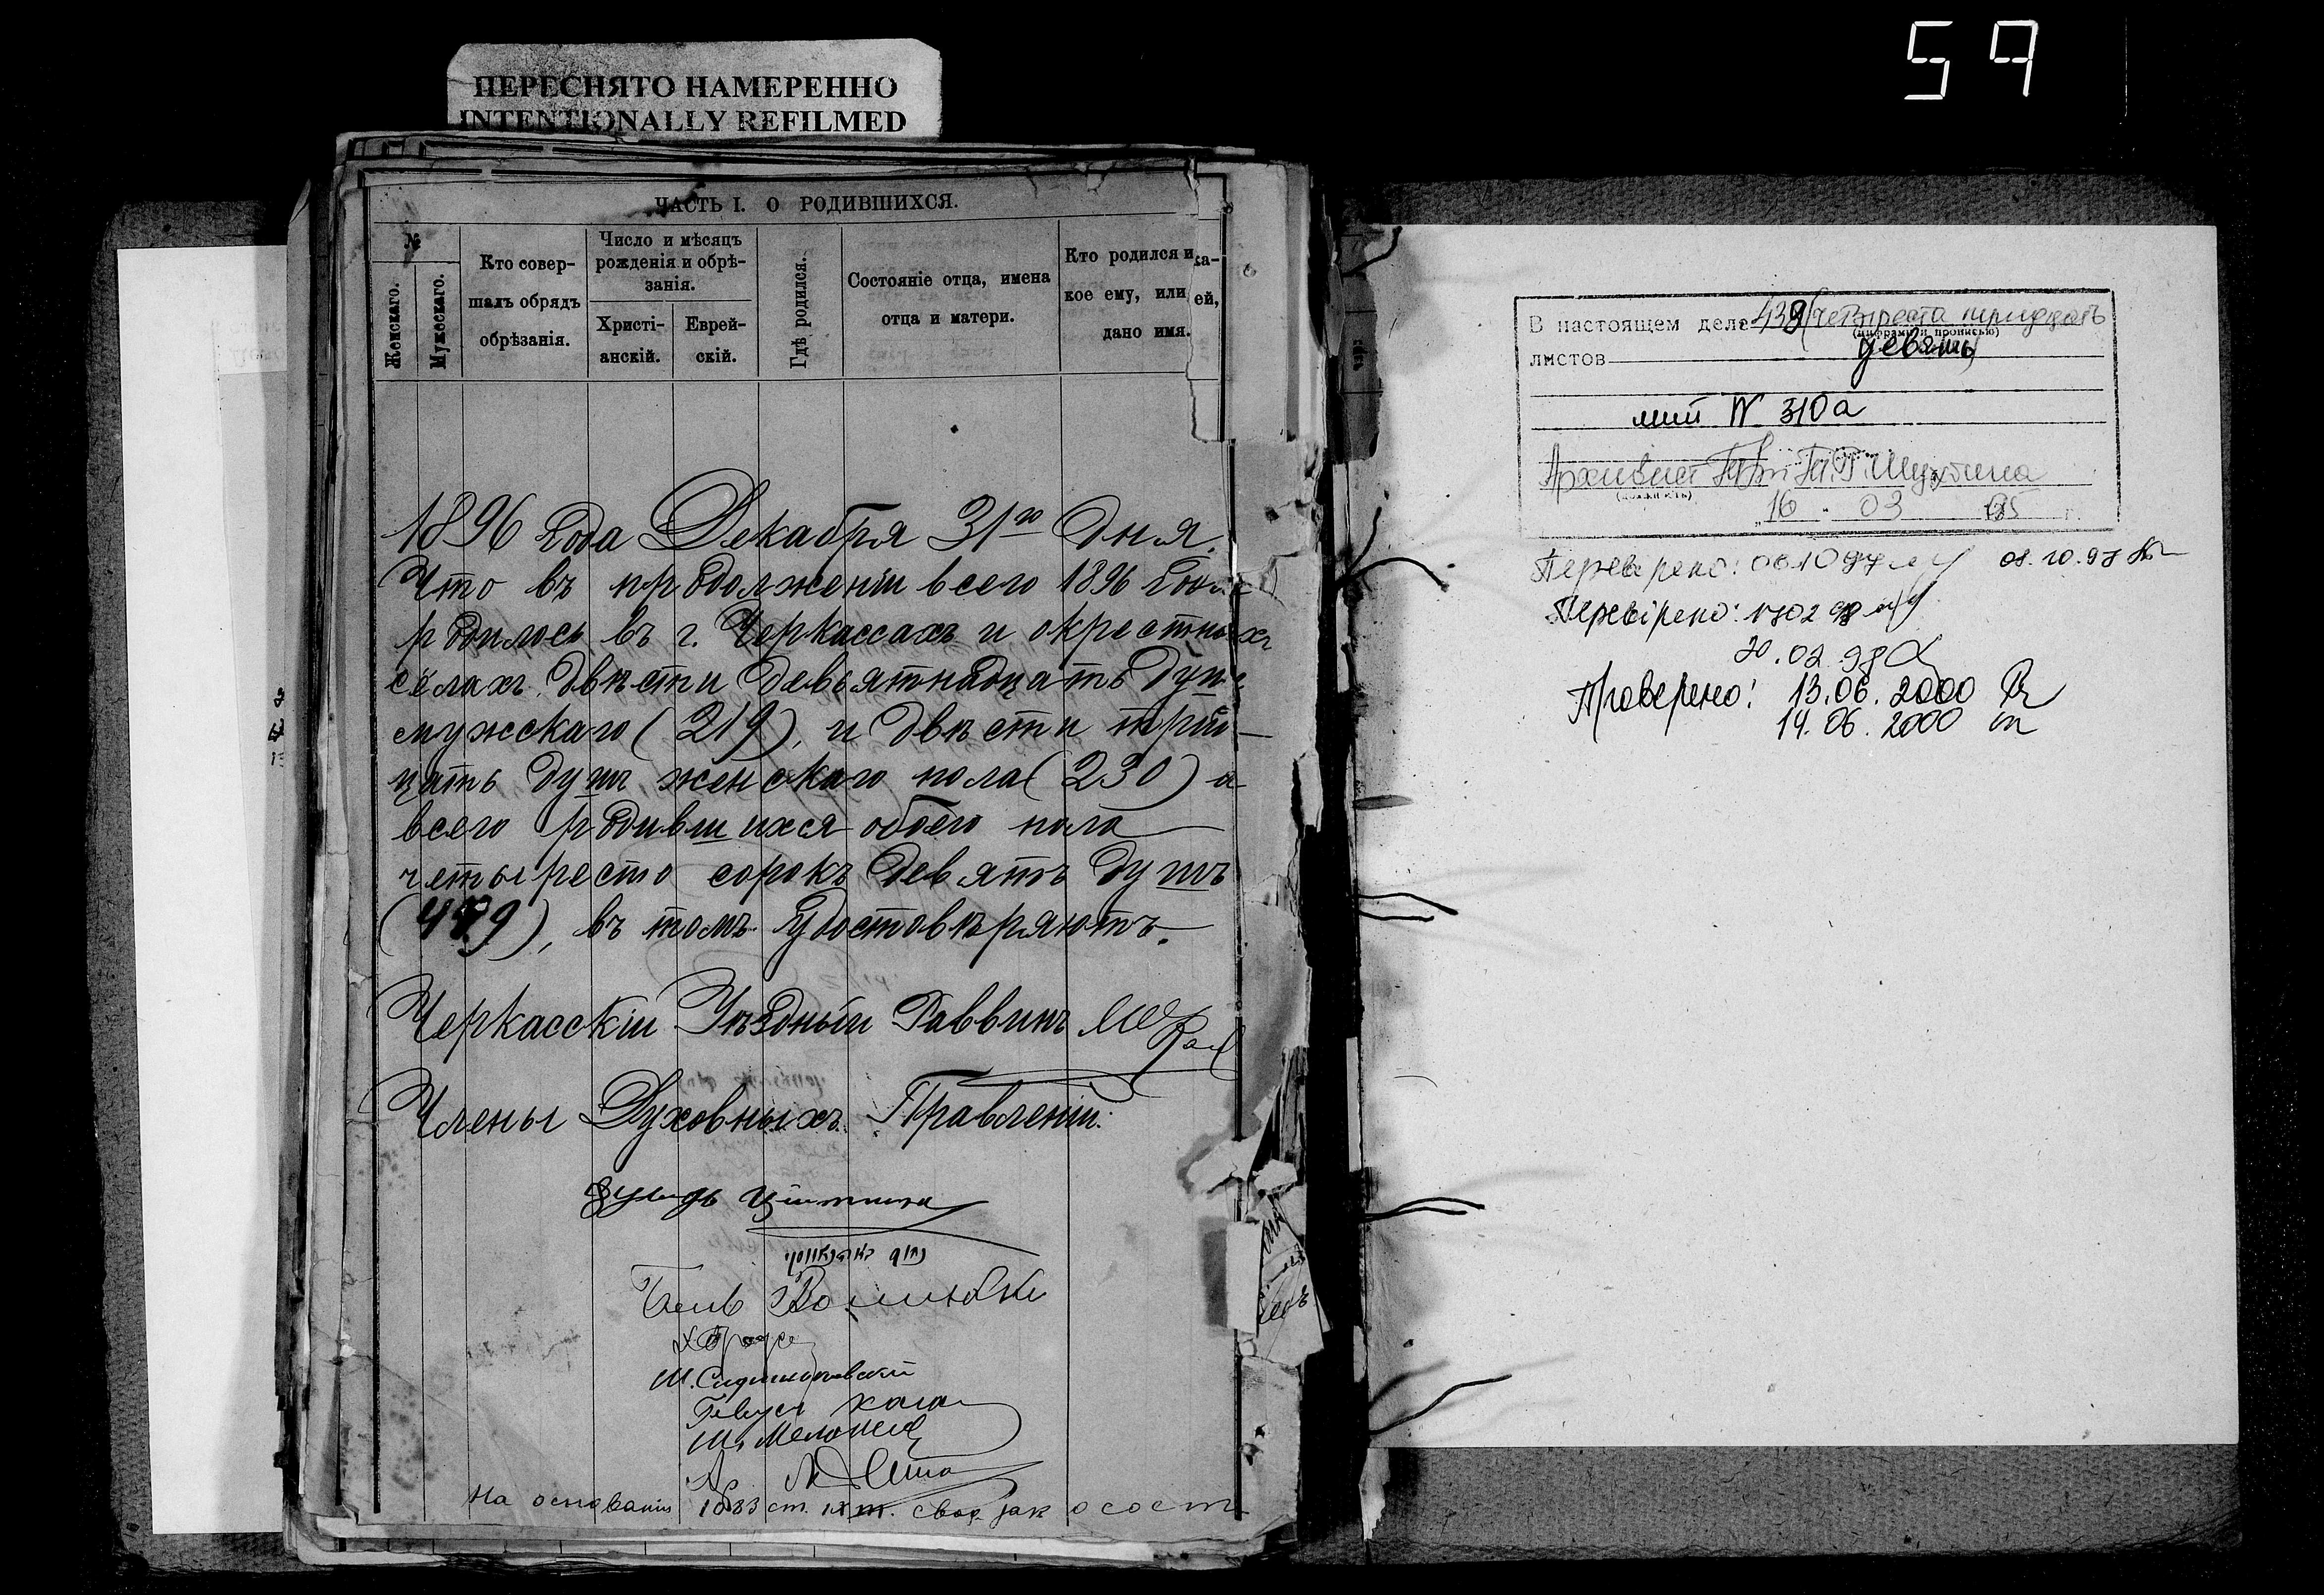 59
ПЕРЕСНЯТО НАМЕРЕННО
INTENTIONALLY REFILMED
ЧАСТЬ I. О РОДИВШИХСЯ.
№
Женскаго.
Мужескаго.
Кто совер-
шалъ обрядъ
обрѣзанія.
Число и мѣсяцъ
рожденія и обрѣ-
занія.
Христі-
анскій.
Еврей-
скій.
Гдѣ родился.
Состояніе отца, имена
отца и матери.
Кто родился и ка-
кое ему, или ей,
дано имя.
1896 года Декабря 31го Дня.
Что въ продолженіи всего 1896 года
родилось въ г. Черкассахъ и окрестныхъ
сёлахъ двѣсти девьятнадцать душъ
мужскаго (219), и двѣсти трид-
цать душъ женскаго пола (230) а
всего родившихся обоего пола
четыресто сорокъ девять душъ
(449), въ томъ удостовѣряютъ.
Черкасскій Уѣздный Раввинъ
Члены Духовныхъ Правленій:
На основаніи 1083 ст. IX т. свод. зак о сост
В настоящем деле 439 (четыреста тридцать
(цифрами и прописью)
листов девять)
лит № 310а
Архивист
(должность)
16 . 03 95 г.
Перевірено: 08.10.97
Перевірено: 17.02.98
20.02.98
Проверено: 13.06.2000
14.06.2000